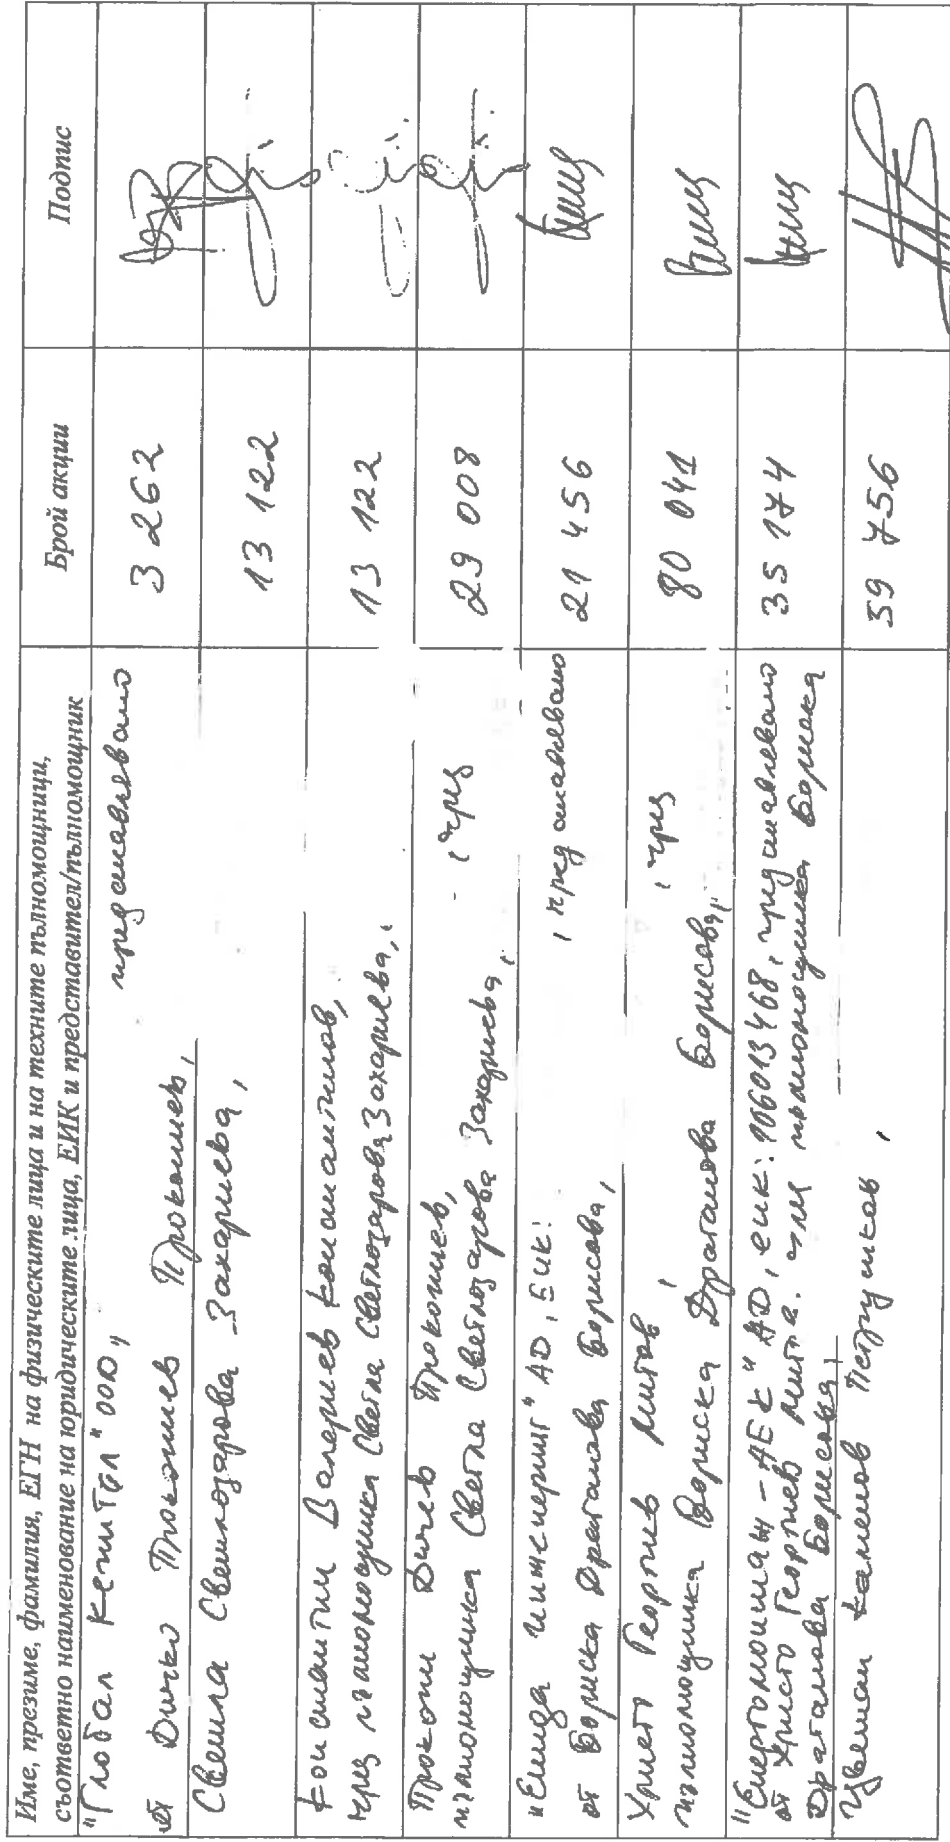 Име, презиме, фамилия, ЕГН на физическите лица и на техните пълномощници,
съответно наименование на юридическите лица, ЕИК и представител/пълномощник
Брой акции
Подпис
"Глобал Кепитъл" ООД,
представлявано
от Дичко Прокопиев Прокопиев,
3 262
Светла Светлозарова Захариева,
13 122
Константин Валериев Константинов,
чрез пълномощника Светла Светлозарова Захариева,
13 122
Прокопи Дичев Прокопиев,
, чрез
пълномощника Светла Светлозарова Захариева,
29 008
"Емда инженеринг" АД, ЕИК:
, представлявано
от Бориска Драганова Борисова,
21 456
Христо Георгиев Митов,
, чрез
пълномощника Бориска Драганова Борисова,
80 041
"Енергомонтаж-АЕК" АД, ЕИК: 106013468, представлявано
от Христо Георгиев Митов, чрез пълномощника Бориска
Драганова Борисова,
35 174
Цветан Каменов Петрушков,
39 756